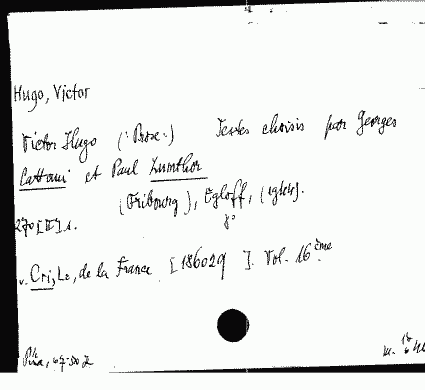 Hugo, Victor
Victor Hugo (:Prose:) Textes choisis par Georges
Cattaui et Paul Zumthor
(Fribourg), Egloff, (1944).
8°
270 [II] s.
v. Cri, Le, de la France [186029]. Vol. 16ème